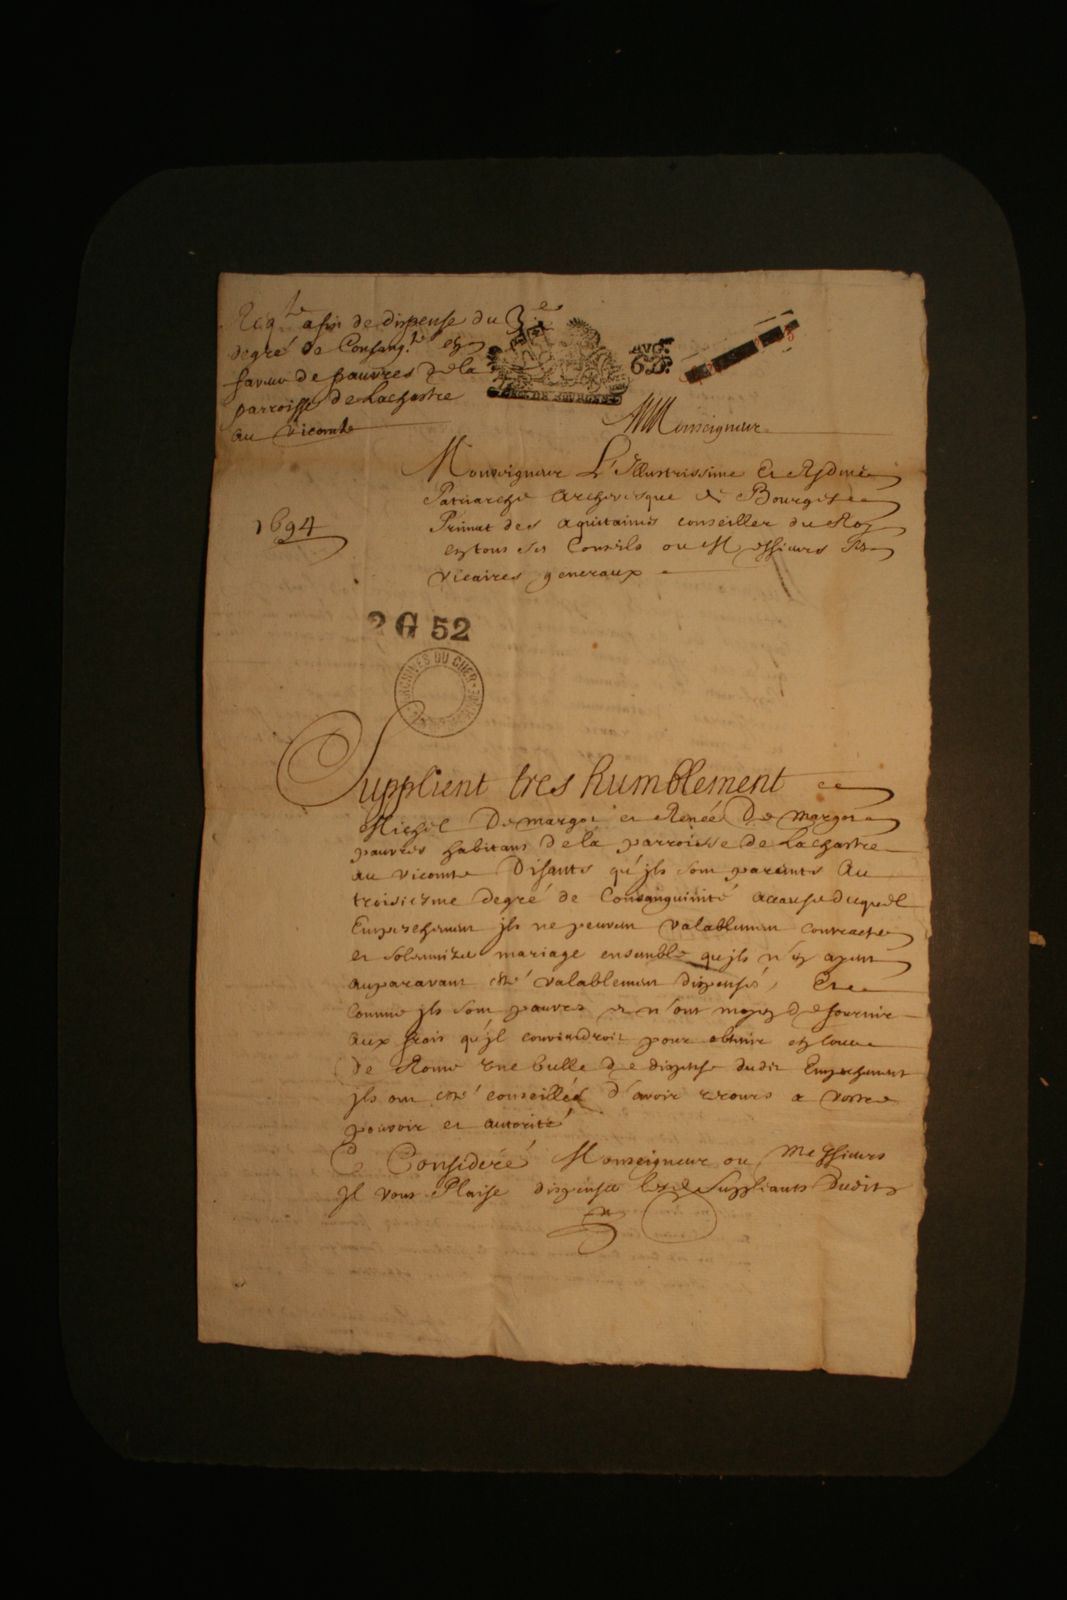 Reqte afin de dispense du 3e
degré de Consangté en
faveur de pauvres de la
parroisse de Lachastre
au vicomte
GEN. DE BOURGES
AVG.
6 D.
Monseigneur
Monseigneur L'Illustrissime et Rsdme
Patriarche archevesque de Bourges
Primat des aquitaines conseiller du Roy
en tous ses Conseils ou Messieurs ses
vicaires generaux
1694
2 G 52
ARCHIVES DU CHER
Supplient tres humblement
Michel Demargot et Renée De margot
pauvres habitans de la parroisse de Lachastre
au vicomte Disants qu'jls sont parents Au
troisiesme degré de Consanguinité acause duquel
Empeschement jls ne peuvent valablement contracter
et solemnizer mariage ensemble qu'jls n'en ayent
auparavant esté valablement dispensés, Et
Comme jls sont pauvres et n'ont moyen de fournir
aux frais qu'jl conviendroit pour obtenir en cour
de Rome une bulle de dispense dudit Empeschement
jls ont esté conseillés d'avoir recours a vostre
pouvoir et autorité
Ce Consideré Monseigneur ou Messieurs
Jl vous Plaise dispenser lesd Suppliants Dudit